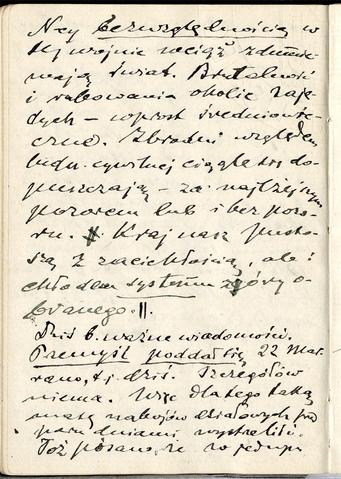 Ncy bezwzględnością w
tej wojnie wciąż zdumie
wają świat. Brutalność
i rabowania okolic zaję
tych – wprost średniowie
czne. Zbrodni względem
ludn. cywilnej ciągle się do
puszczają – za najlżejszym
pozorem lub i bez pozo-
ru. Kraj nasz pusto-
szą z zaciekłością, ale i
chłodem systemu zgóry o-
branego.
Dziś b. ważne wiadomości.
Przemyśl poddał się, 22 Mar
rano, t.j. dziś. Szczegółów
niema. Więc dlatego taką
masę nabojów działowych przed
paru dniami wystrzelili.
Toż pisano, że w jednym